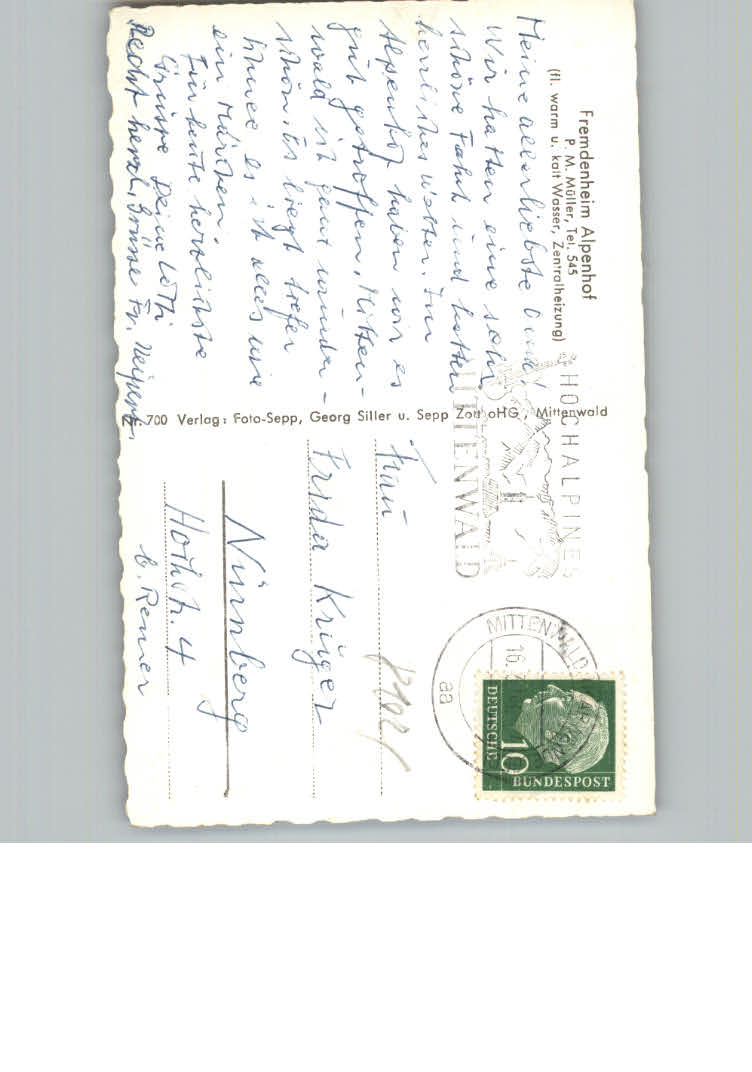 Fremdenheim Alpenhof
P. M. Müller, Tel. 545
(fl. warm u. kalt Wasser, Zentralheizung)
Meine allerliebste
Wir hatten eine sehr
schöne Fahrt und hatten
herrliches Wetter. Im
Alpenhof haben wir es
gut getroffen. Mitten-
wald ist ganz wunder-
schön. Es liegt tiefer
Schnee es ist alles wie
ein Märchen.
Für heute herzlichste
Grüsse Deine
Recht herzl. Grüsse Fr.
Z. 700 Verlag: Foto-Sepp, Georg Siller u. Sepp Zott oHG, Mittenwald
HOCHALPINES
MITTENWALD
MITTENWALD
16.
aa
10
DEUTSCHE
BUNDESPOST
Frau
Frida Krüger
Nürnberg
Hothstr. 4
b. Renner